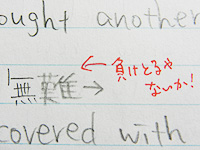 ought another
無難 → ← 負けとるや
ないか!
covered with